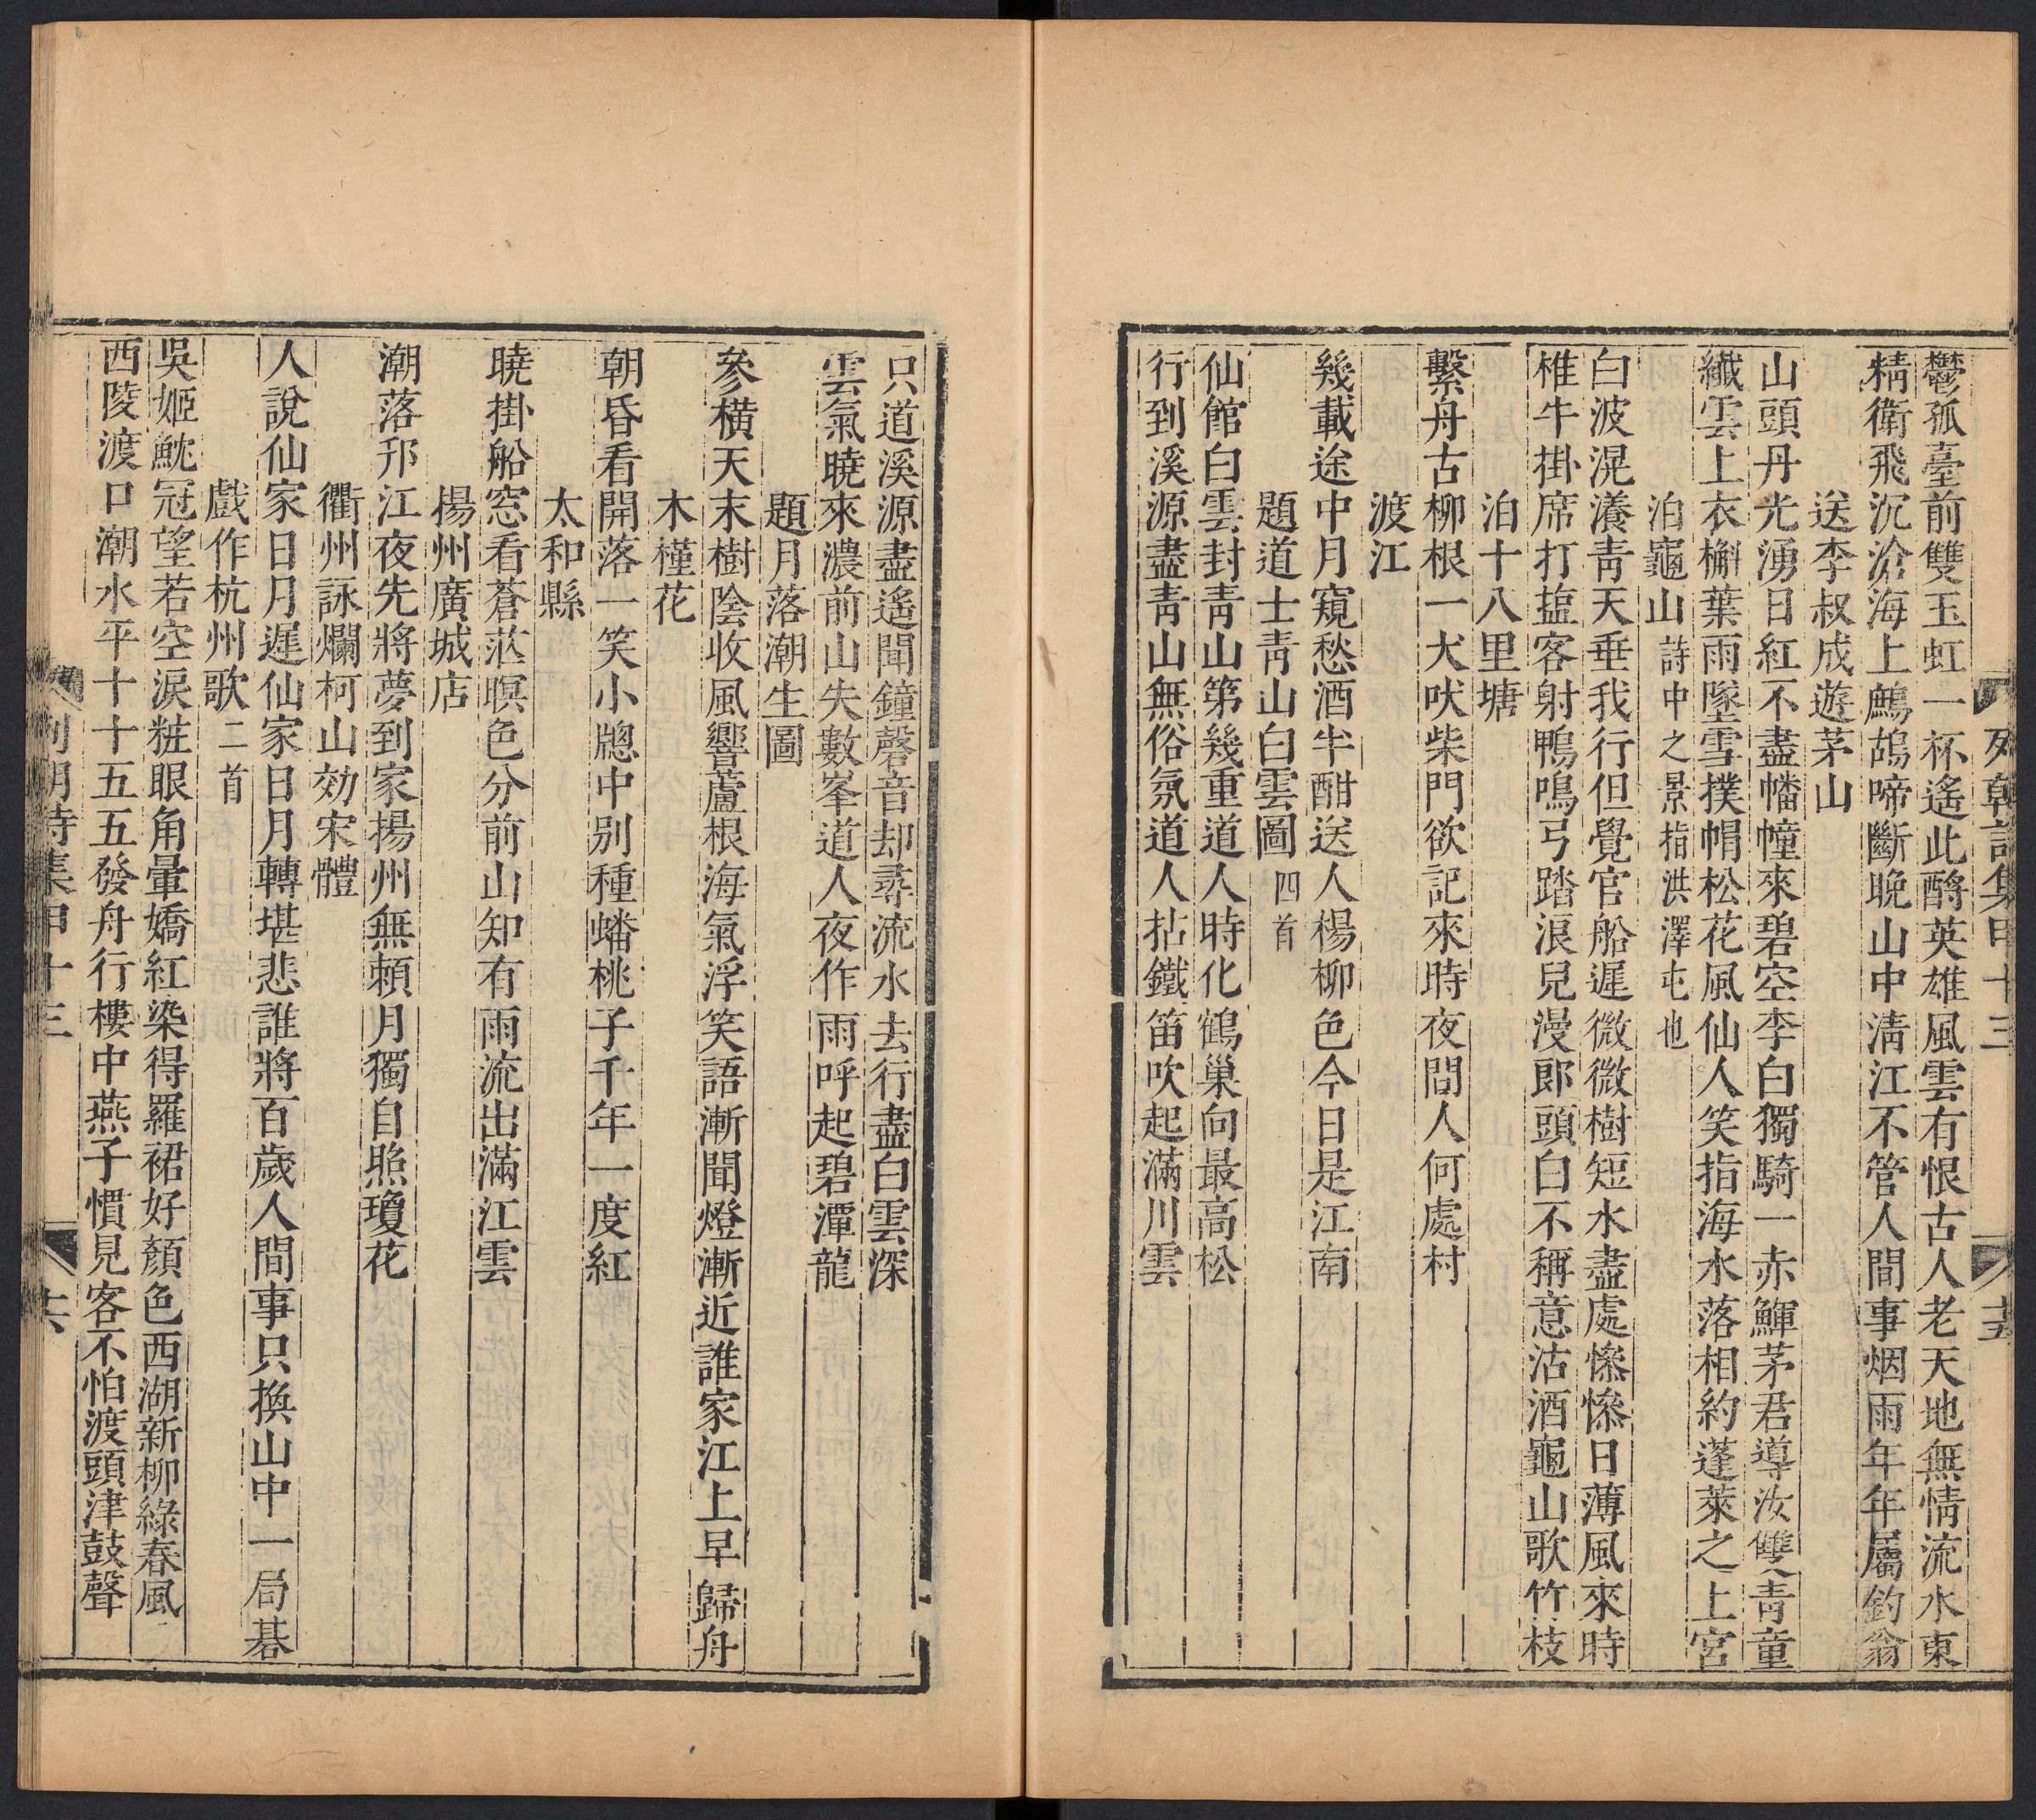 列朝詩集甲十三 十五
鬱孤臺前雙玉虹一杯遙此酹英雄風雲有恨古人老天地無情流水東
精衛飛沉滄海上鷓鴣啼斷晚山中淸江不管人間事烟雨年年屬釣翁
送李叔成遊茅山
山頭丹光湧日紅不盡幡幢來碧空李白獨騎一赤鯶茅君導汝雙靑童
纖雲上衣槲葉雨墜雪撲帽松花風仙人笑指海水落相約蓬萊之上宮
泊龜山 詩中之景指洪澤屯也
白波滉瀁靑天垂我行但覺官船遲微微樹短水盡處慘慘日薄風來時
椎牛掛席打鹽客射鴨鳴弓踏浪兒漫郎頭白不稱意沽酒龜山歌竹枝
泊十八里塘
繫舟古柳根一犬吠柴門欲記來時夜問人何處村
渡江
幾載途中月窺愁酒半酣送人楊柳色今日是江南
題道士靑山白雲圖 四首
仙館白雲封靑山第幾重道人時化鶴巢向最高松
行到溪源盡靑山無俗氛道人拈鐵笛吹起滿川雲
只道溪源盡遙聞鐘磬音却尋流水去行盡白雲深
雲氣曉來濃前山失數峯道人夜作雨呼起碧潭龍
題月落潮生圖
參橫天末樹陰收風響蘆根海氣浮笑語漸聞燈漸近誰家江上早歸舟
木槿花
朝昏看開落一笑小牕中别種蟠桃子千年一度紅
太和縣
曉掛船窓看蒼茫暝色分前山知有雨流出滿江雲
楊州廣城店
潮落邗江夜先將夢到家揚州無賴月獨自照瓊花
衢州詠爛柯山効宋體
人說仙家日月遲仙家日月轉堪悲誰將百歲人間事只換山中一局碁
戲作杭州歌 二首
吳姬魫冠望若空淚粧眼角暈嬌紅染得羅裙好顏色西湖新柳綠春風
西陵渡口潮水平十十五五發舟行樓中燕子慣見客不怕渡頭津鼓聲
列朝詩集甲十三 十六